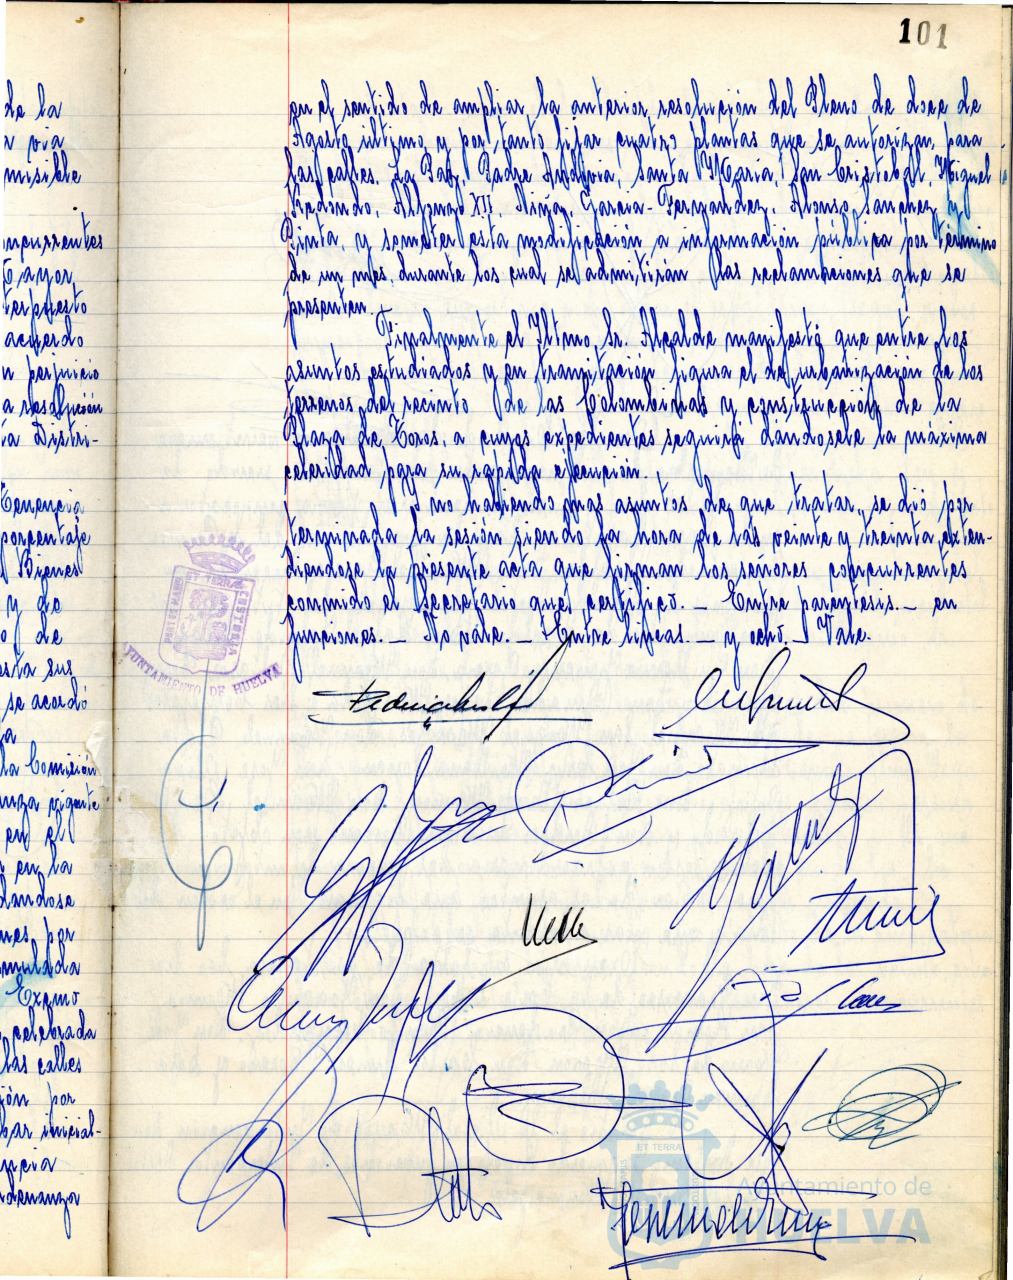 101
de la
n via
misible
ncurrentes
Mayor
terpuesto
acuerdo
n perjuicio
a resolución
ía Distri-
Tenencia
porcentaje
Bienes
y de
o de
esta sus
se acordó
la
la Comisión
nza vigente
en el
en la
dandose
nes por
mulada
Excmo
celebrada
las calles
ión por
bar inicial-
ncia
denanza
en el sentido de ampliar la anterior resolución del Pleno de doce de
Agosto ultimo y por tanto fijar cuatro plantas que se autorizan, para
las calles, La Paz, Padre Andivia, Santa Maria, San Cristobal, Miguel
Redondo, Alfonso XII, Niña, Garcia-Fernandez, Alonso Sanchez y
Pinta, y someter esta modificación a información pública por término
de un mes, durante los cual se admitirán las reclamaciones que se
presenten.
Finalmente el Iltmo Sr. Alcalde manifestó que entre los
asuntos estudiados y en tramitación figura el de urbanización de los
terrenos del recinto de las Colombinas y construcción de la
Plaza de Toros, a cuyos expedientes seguirá dándosele la máxima
celeridad para su rápida ejecución.
Y no habiendo mas asuntos de que tratar, se dió por
terminada la sesión siendo la hora de las veinte y treinta, exten-
diendose la presente acta que firman los señores concurrentes
conmigo el Secretario que certifico. — Entre paréntesis. — en
funciones. — No vale. — Entre lineas. — y ocho. — Vale.
ET TERRAE
CUSTODIA
PORTUS MARIS
AYUNTAMIENTO DE HUELVA
ET TERRA
Ayuntamiento de
HUELVA